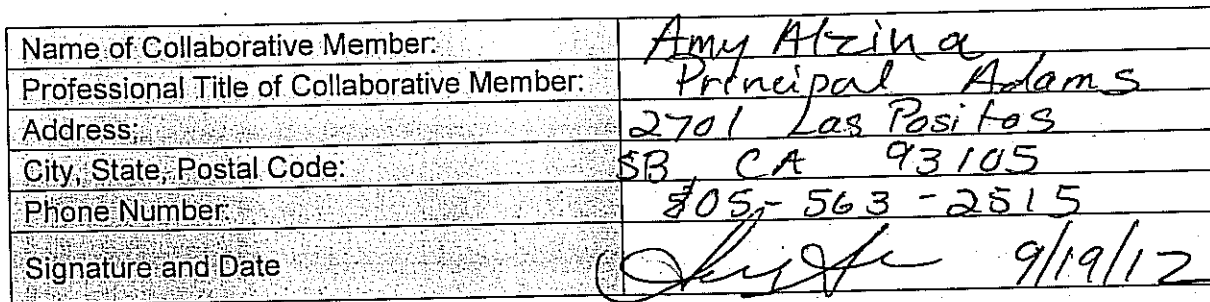 Name of Collaborative Member: Amy Alzina
Professional Title of Collaborative Member: Principal Adams
Address: 2701 Las Positos
City, State, Postal Code: SB, CA 93105
Phone Number: 805-563-2515
Signature and Date 9/19/12